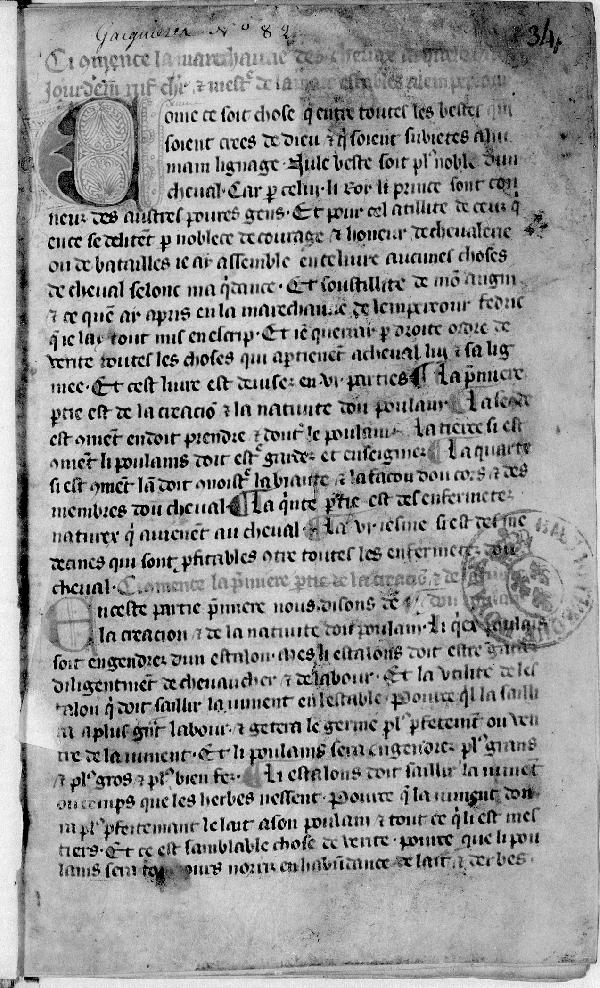 Gaignieres N° 82
34
Ci comence la marechaucie des chevax
Jourdein ruf chr
Come ce soit chose q entre toutes les bestes qui
soient crees de dieu & q soient subietes a lu
main lignage. Nule beste soit pl' noble dun
cheval. Car p celui li Roy li prince sont con
neuz des austres poures gens. Et pour cel atillite de ceux q
ence se delitet p noblece de courage & honeur de chevalerie
ou de batailles ie ay assemble en ce livre aucunes choses
de cheval selonc ma qdance. Et soustillite de mon angin
& ce que ay apris en la marechaucie de lempereour fedric
q ie lay tout mis en escrip. Et ie querray p droite ordre de
verite toutes les choses qui aptienet a cheval lui & sa lig
niee. Et cest livre est devisez en vi parties ¶ La pmiere
ptie est de la creacio & la nativite dou poulain ¶ La secde
est 9met en doit prendre & dont' le poulain. La tierce si est
9met li poulains doit est' gardez et enseigniez ¶ La quarte
si est 9met lan doit 9noist' la biaute & la facon dou cors & des
membres dou cheval ¶ La qnte ptie est des enfermetez
naturex q avienet au cheval. ¶ La vi iesme si est des me
decines qui sont pfitables 9tre toutes les enfermetez dou
cheval. Ci comence la pmiere ptie de la creacio & de la
En ceste partie pmiere nous disons de
la creacion & de la nativite dou poulain. Li qex poulains
soit engendrez dun estalon. Mes li estalons doit estre gardez
diligentmet de chevaucher & de labour. Et la utilite de les
talon q doit saillir la jument en lestable. Pource ql la sailli
ra a plus gnt labour & getera le germe pl' pfetemt ou ven
tre de la jument. Et li poulains sera engendrez pl' grans
& pl' gros & pl' bien fez. ¶ Li estalons doit saillir la jumet
ou temps que les herbes nessent. Pource q la jument don
ra pl' pfeitemant le lait a son poulain & tout ce q li est mes
tiers. Et ce est samblable chose de verite. pource que li pou
lains sera touzjours norriz en habudance de lait & derbes.